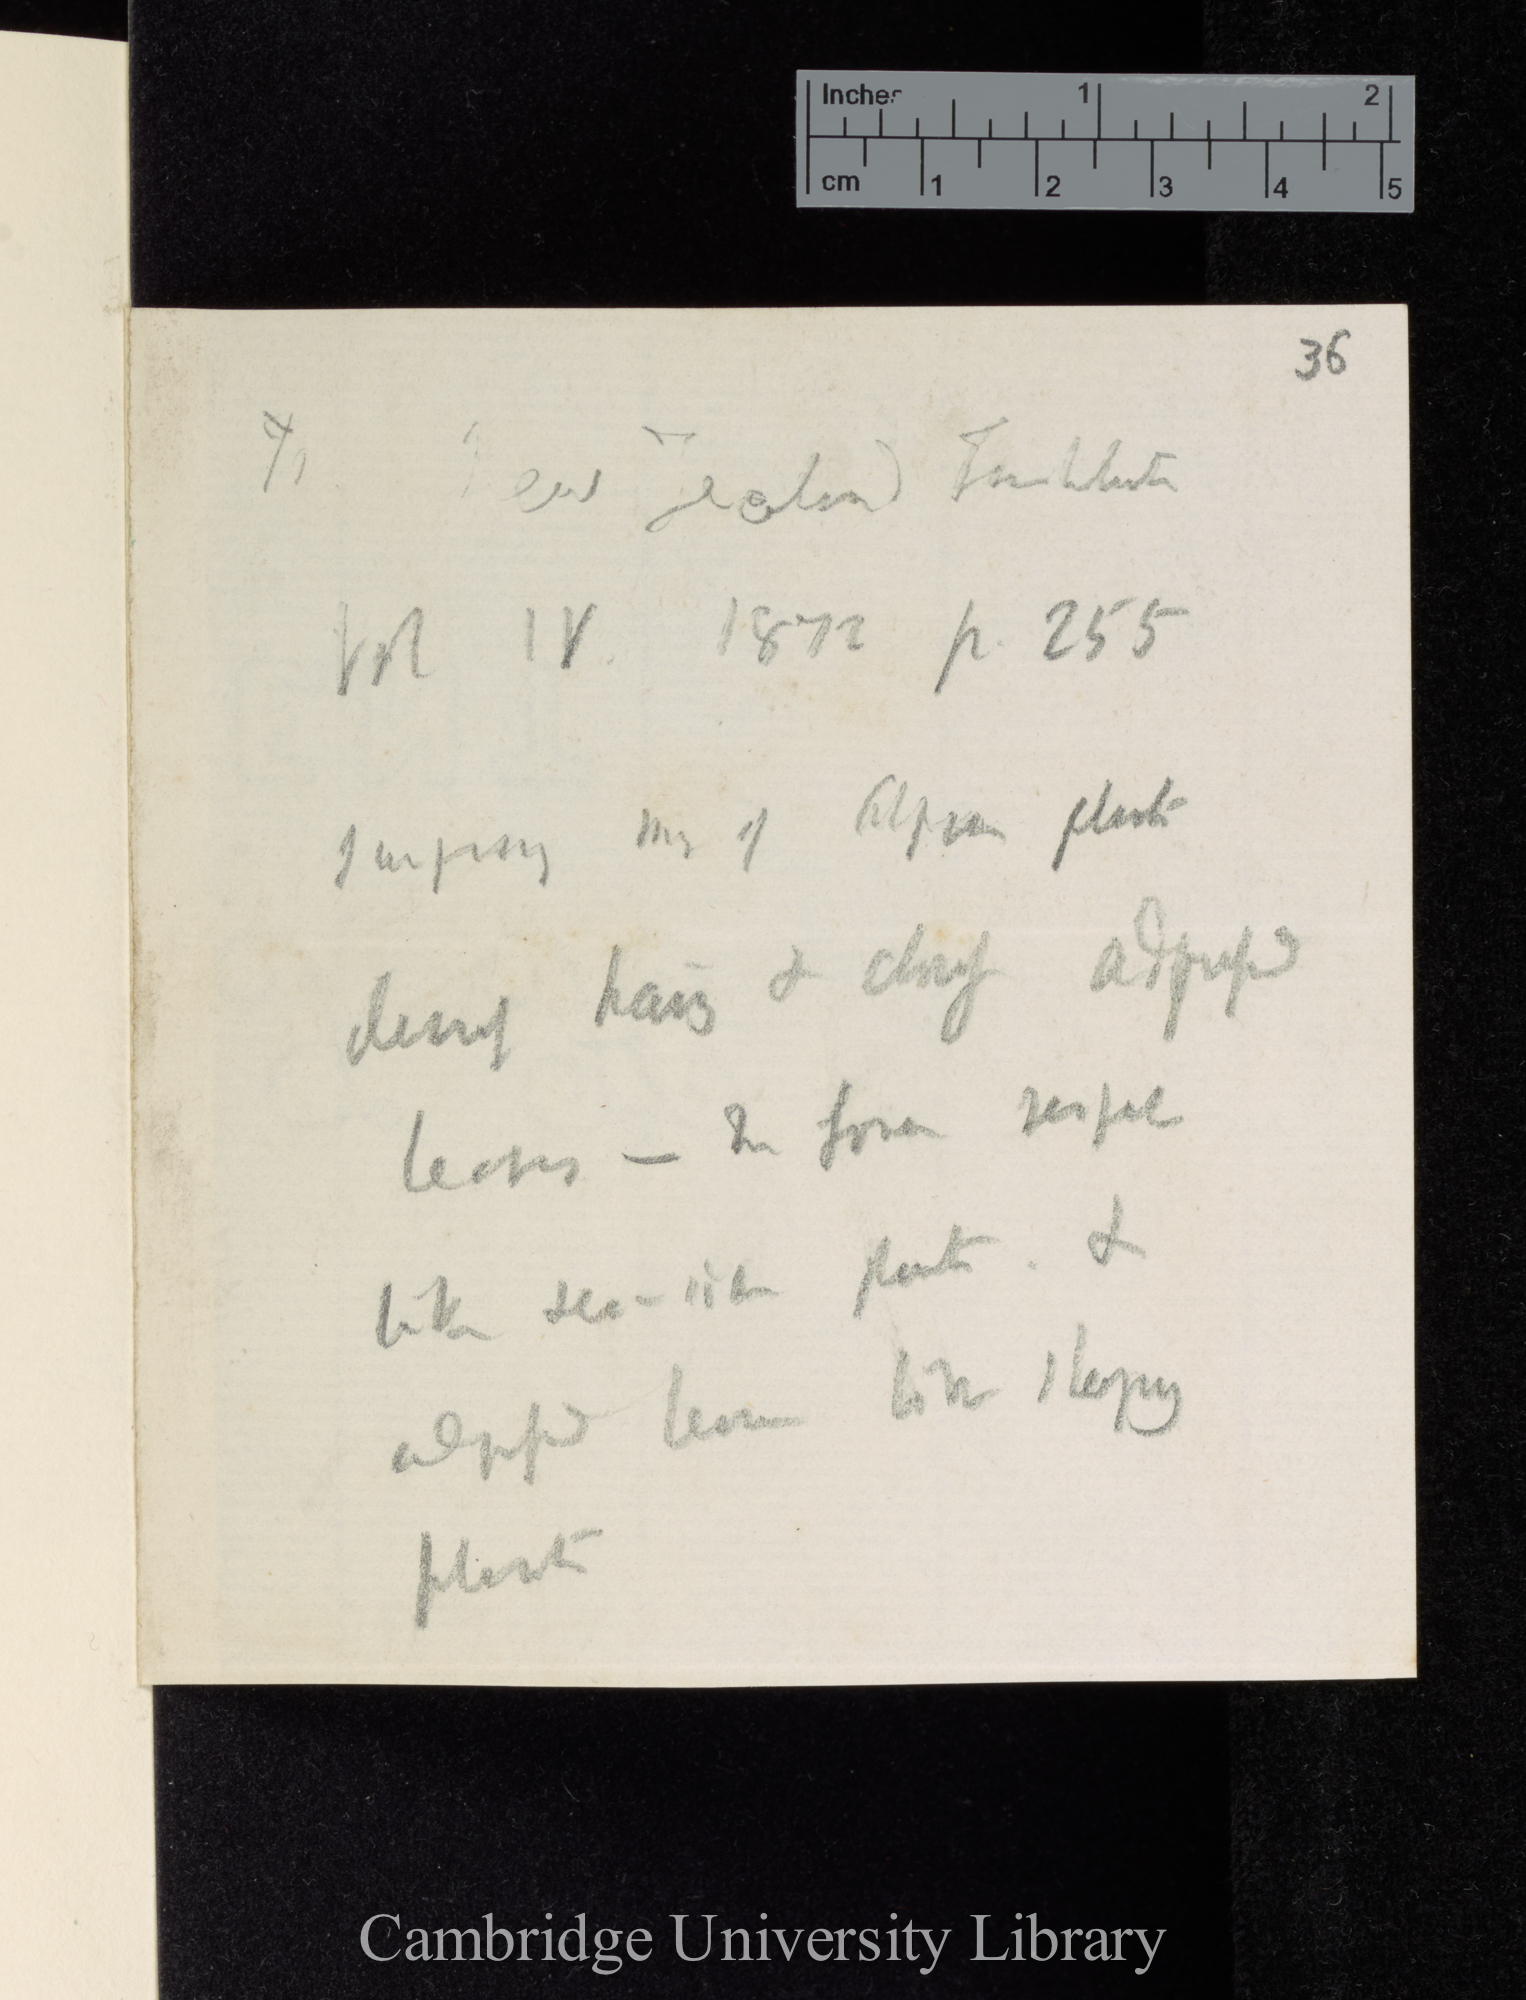 Inches 1 2
cm 1 2 3 4 5
36
Tr New Zealand Institute
Vol IV. 1872 p. 255
many of Alpine plants
densely hairy & closely adpressed
leaves — in form
like sea-side plants. & 
adpressed leaves like sleeping
plants
Cambridge University Library